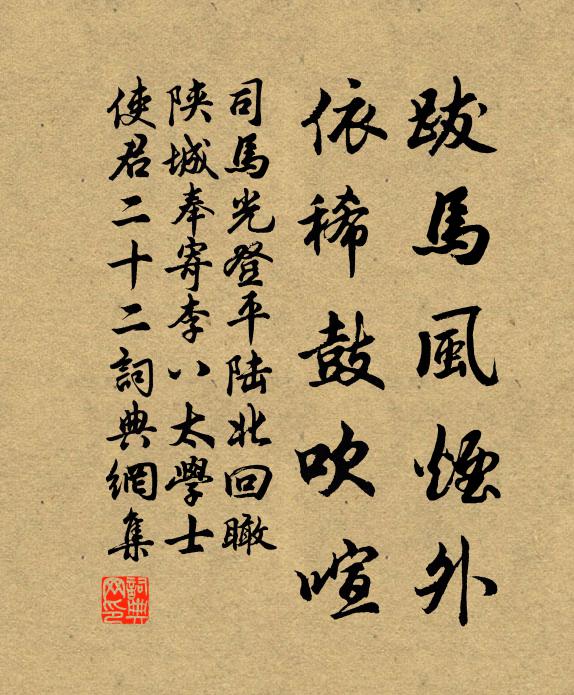 跋馬風煙外
依稀鼓吹喧
司馬光登平陆北回瞰
陕城奉寄李八太學士
使君二十二詞典網集
詞典网印